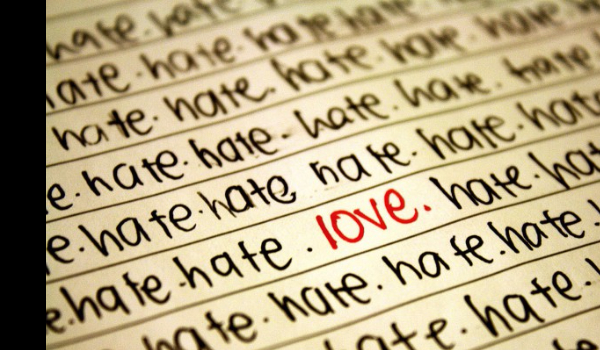 hate. hate.
hate. hate. hate hate.
hate. hate. hate. hate. hate
e. hate. hate. hate. hate. hate
e. hate. hate, hate. hate. hate
e. hate. hate. love. hate. hat
hate. hate. hate. hate.
hate. hate.